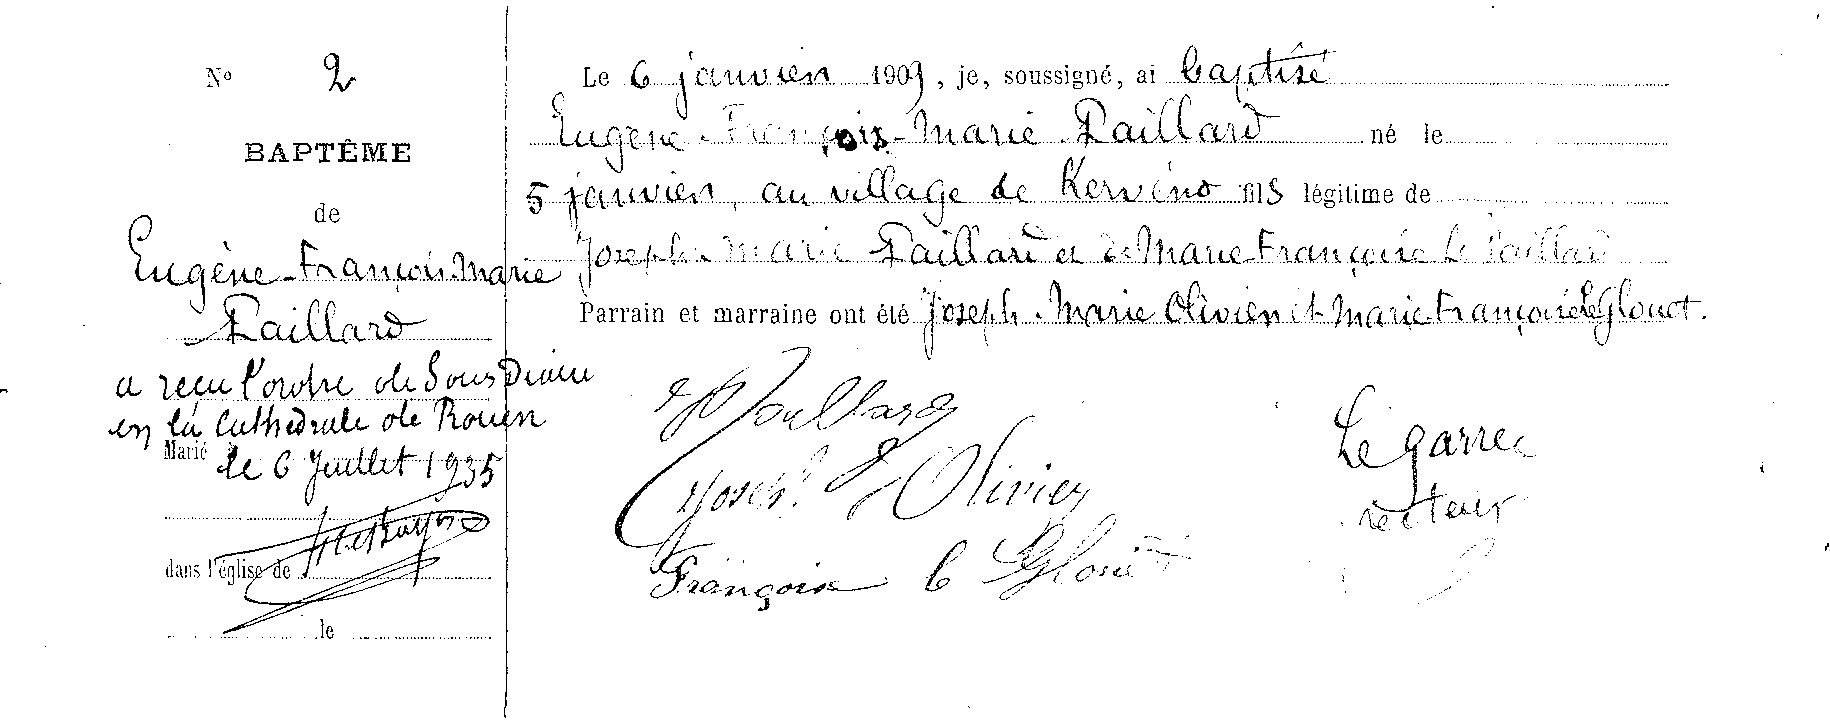 N° 2
BAPTÊME
de
Eugène-François-Marie
Paillard
a reçu l'ordre de Sous Diacre
en la Cathédrale de Rouen
Marié
le 6 Juillet 1935
dans l'église de
le
Le 6 janvier 1909, je, soussigné, ai baptisé
Eugène-François-Marie Paillard né le
5 janvier, au village de Kervéno fils légitime de
Joseph-Marie Paillard et de Marie-Françoise Le Paillard
Parrain et marraine ont été Joseph-Marie Olivier et Marie-Françoise Le Glouet.
Joseph Olivier
Françoise le Glouet
Le Garrec
recteur